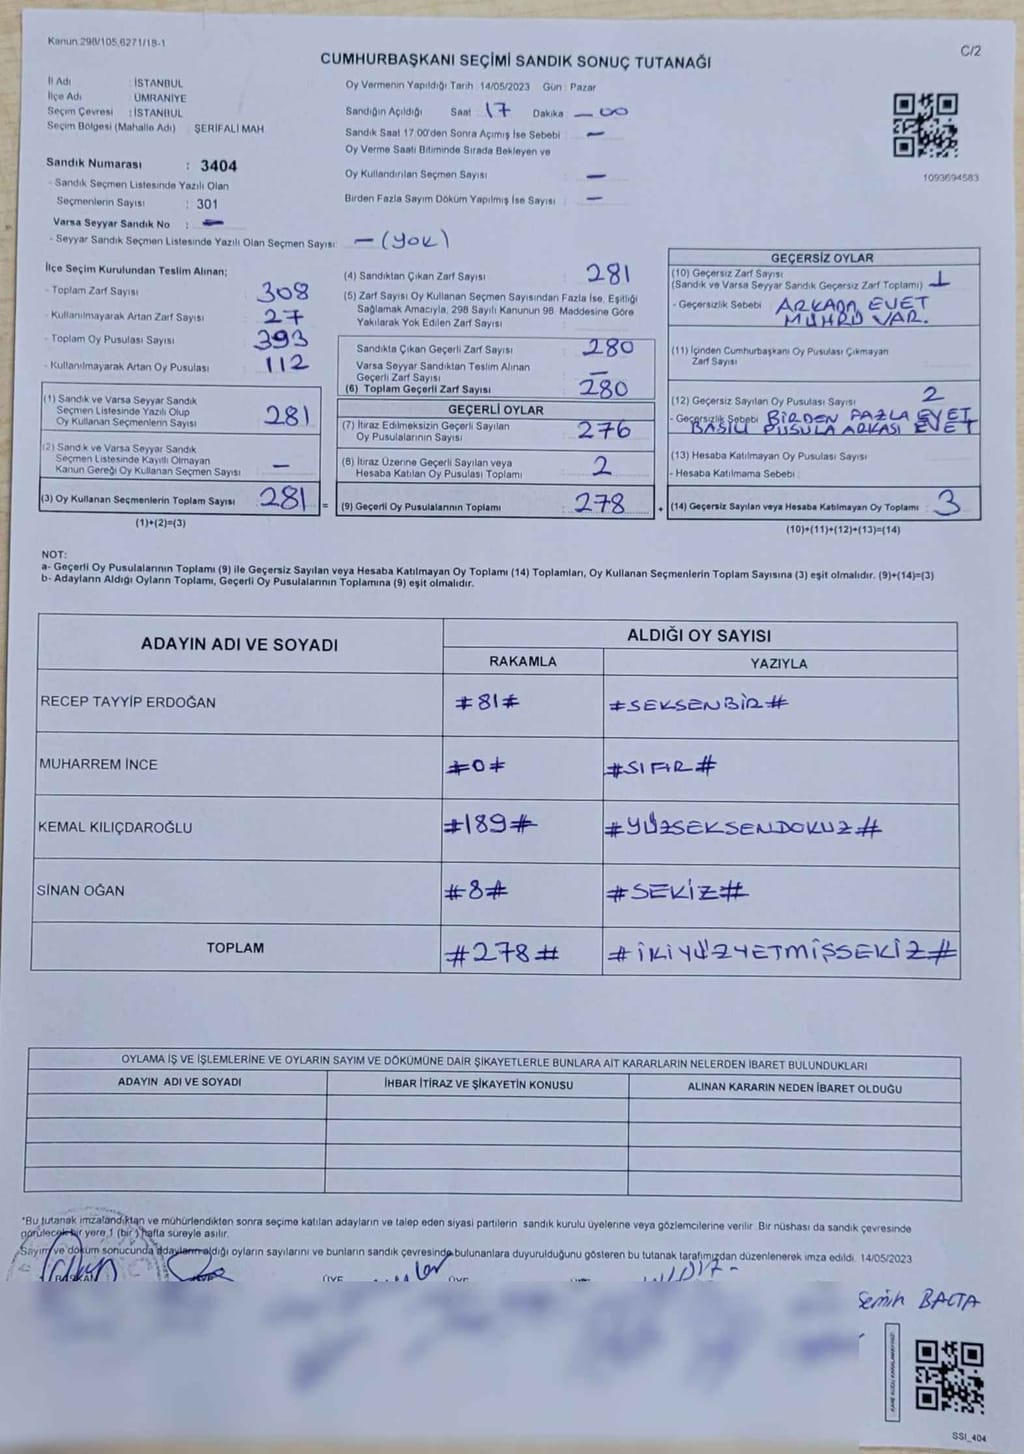 Kanun 298/105,6271/18-1
C/2
CUMHURBAŞKANI SEÇİMİ SANDIK SONUÇ TUTANAĞI
İl Adı : İSTANBUL
İlçe Adı : ÜMRANİYE
Seçim Çevresi : İSTANBUL
Seçim Bölgesi (Mahalle Adı) : ŞERİFALİ MAH
Sandık Numarası : 3404
- Sandık Seçmen Listesinde Yazılı Olan
Seçmenlerin Sayısı : 301
Varsa Seyyar Sandık No : —
- Seyyar Sandık Seçmen Listesinde Yazılı Olan Seçmen Sayısı: — (YOK)
Oy Vermenin Yapıldığı Tarih 14/05/2023 Gün : Pazar
Sandığın Açıldığı Saat 17 Dakika — 00
Sandık Saat 17:00'den Sonra Açımış İse Sebebi : —
Oy Verme Saati Bitiminde Sırada Bekleyen ve
Oy Kullandırılan Seçmen Sayısı : —
Birden Fazla Sayım Döküm Yapılmış İse Sayısı : —
1093694583
İlçe Seçim Kurulundan Teslim Alınan;
- Toplam Zarf Sayısı : 308
- Kullanılmayarak Artan Zarf Sayısı : 27
- Toplam Oy Pusulası Sayısı : 393
- Kullanılmayarak Artan Oy Pusulası : 112
(1) Sandık ve Varsa Seyyar Sandık
Seçmen Listesinde Yazılı Olup
Oy Kullanan Seçmenlerin Sayısı : 281
(2) Sandık ve Varsa Seyyar Sandık
Seçmen Listesinde Kayıtlı Olmayan
Kanun Gereği Oy Kullanan Seçmen Sayısı : —
(3) Oy Kullanan Seçmenlerin Toplam Sayısı : 281 =
(1)+(2)=(3)
(4) Sandıktan Çıkan Zarf Sayısı : 281
(5) Zarf Sayısı Oy Kullanan Seçmen Sayısından Fazla İse, Eşitliği
Sağlamak Amacıyla, 298 Sayılı Kanunun 98. Maddesine Göre
Yakılarak Yok Edilen Zarf Sayısı :
Sandıkta Çıkan Geçerli Zarf Sayısı : 280
Varsa Seyyar Sandıktan Teslim Alınan
Geçerli Zarf Sayısı : —
(6) Toplam Geçerli Zarf Sayısı : 280
GEÇERLİ OYLAR
(7) İtiraz Edilmeksizin Geçerli Sayılan
Oy Pusulalarının Sayısı : 276
(8) İtiraz Üzerine Geçerli Sayılan veya
Hesaba Katılan Oy Pusulası Toplamı : 2
(9) Geçerli Oy Pusulalarının Toplamı : 278 +
GEÇERSİZ OYLAR
(10) Geçersiz Zarf Sayısı
(Sandık ve Varsa Seyyar Sandık Geçersiz Zarf Toplamı) : 1
- Geçersizlik Sebebi : ARKADA EVET
MÜHRÜ VAR.
(11) İçinden Cumhurbaşkanı Oy Pusulası Çıkmayan
Zarf Sayısı :
(12) Geçersiz Sayılan Oy Pusulası Sayısı : 2
- Geçersizlik Sebebi : BİRDEN FAZLA EVET
BASILI PUSULA ARKASI EVET
(13) Hesaba Katılmayan Oy Pusulası Sayısı :
- Hesaba Katılmama Sebebi :
(14) Geçersiz Sayılan veya Hesaba Katılmayan Oy Toplamı : 3
(10)+(11)+(12)+(13)=(14)
NOT:
a- Geçerli Oy Pusulalarının Toplamı (9) ile Geçersiz Sayılan veya Hesaba Katılmayan Oy Toplamı (14) Toplamları, Oy Kullanan Seçmenlerin Toplam Sayısına (3) eşit olmalıdır. (9)+(14)=(3)
b- Adayların Aldığı Oyların Toplamı, Geçerli Oy Pusulalarının Toplamına (9) eşit olmalıdır.
ADAYIN ADI VE SOYADI
ALDIĞI OY SAYISI
RAKAMLA YAZIYLA
RECEP TAYYİP ERDOĞAN #81# #SEKSENBİR#
MUHARREM İNCE #0# #SIFIR#
KEMAL KILIÇDAROĞLU #189# #YÜZSEKSENDOKUZ#
SİNAN OĞAN #8# #SEKİZ#
TOPLAM #278# #İKİYÜZYETMİŞSEKİZ#
OYLAMA İŞ VE İŞLEMLERİNE VE OYLARIN SAYIM VE DÖKÜMÜNE DAİR ŞİKAYETLERLE BUNLARA AİT KARARLARIN NELERDEN İBARET BULUNDUKLARI
ADAYIN ADI VE SOYADI İHBAR İTİRAZ VE ŞİKAYETİN KONUSU ALINAN KARARIN NEDEN İBARET OLDUĞU
*Bu tutanak imzalandıktan ve mühürlendikten sonra seçime katılan adayların ve talep eden siyasi partilerin sandık kurulu üyelerine veya gözlemcilerine verilir. Bir nüshası da sandık çevresinde
görülecek bir yere 1 (bir) hafta süreyle asılır.
Sayım ve döküm sonucunda adayların aldığı oyların sayılarını ve bunların sandık çevresinde bulunanlara duyurulduğunu gösteren bu tutanak tarafımızdan düzenlenerek imza edildi. 14/05/2023
BAŞKAN ÜYE ÜYE
Semih BALTA
SSI_404